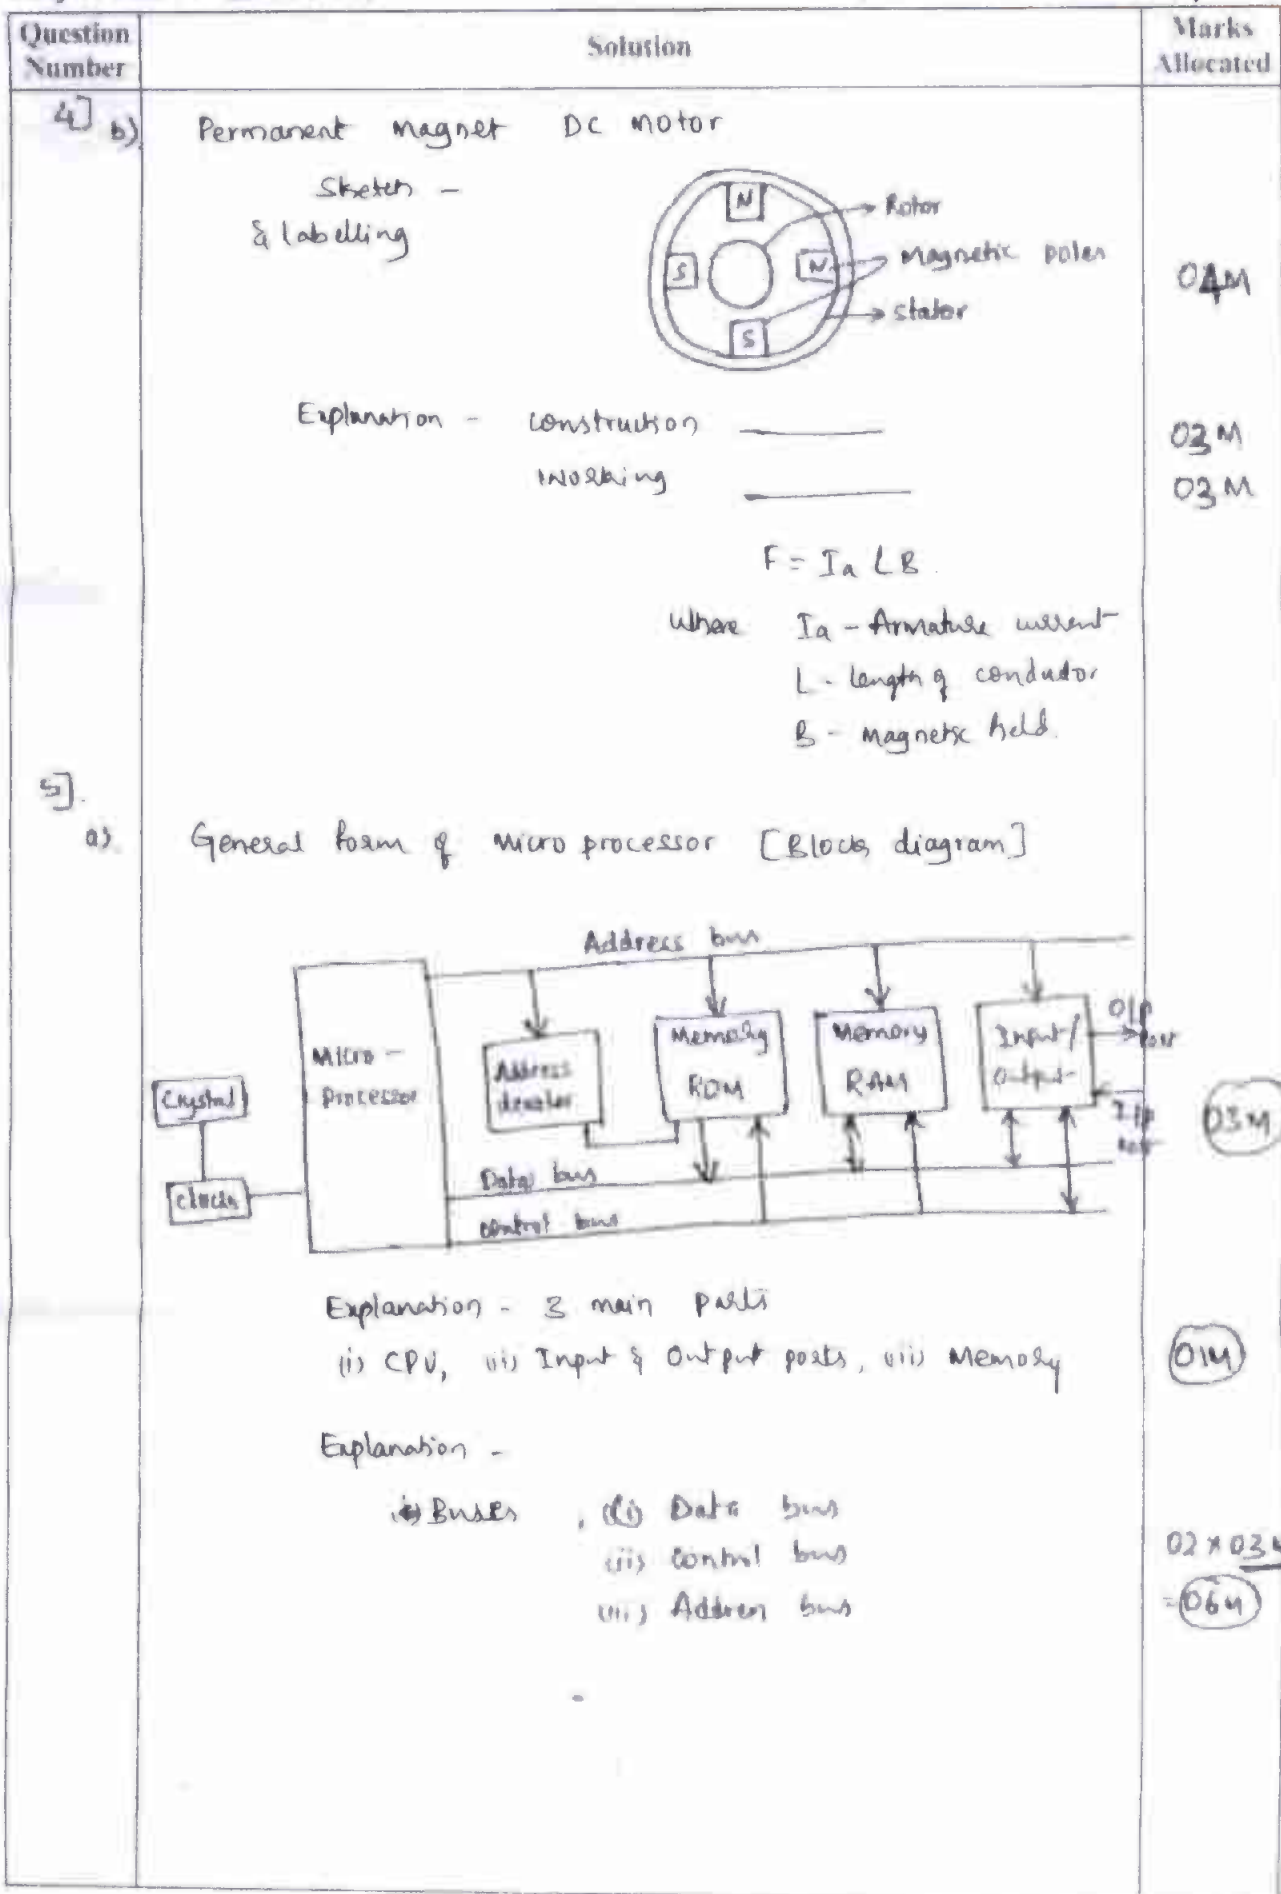 Question Number
Solution
Marks Allocated
4] b) Permanent Magnet DC Motor
Sketch -
& labelling
N
S
N
S
Rotor
Magnetic poles
stator
04M
Explanation - construction
03M
Working
03M
F = Ia LB.
Where Ia - Armature current
L - length of conductor
B - Magnetic field.
5].
a) General form of Micro processor [Block diagram]
Address bus
Crystal
clock
Micro -
Processor
Address
decoder
Memory
ROM
Memory
RAM
Input/
Output
O/p
Port
I/p
Port
Data bus
control bus
03M
Explanation - 3 main parts
(i) CPU, (ii) Input & Output ports, (iii) Memory
01M
Explanation -
Buses , (i) Data bus
(ii) Control bus
(iii) Address bus
02 x 03M
= 06M